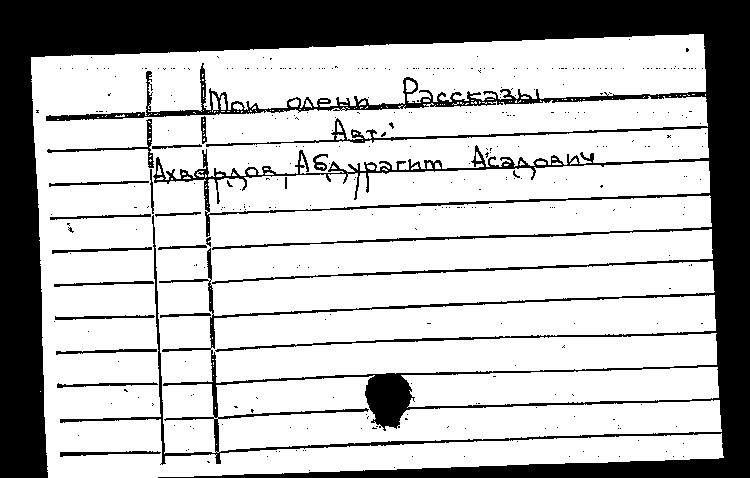 Мои олени. Рассказы
Авт.:
Ахвердов, Абдурагим Асадович.